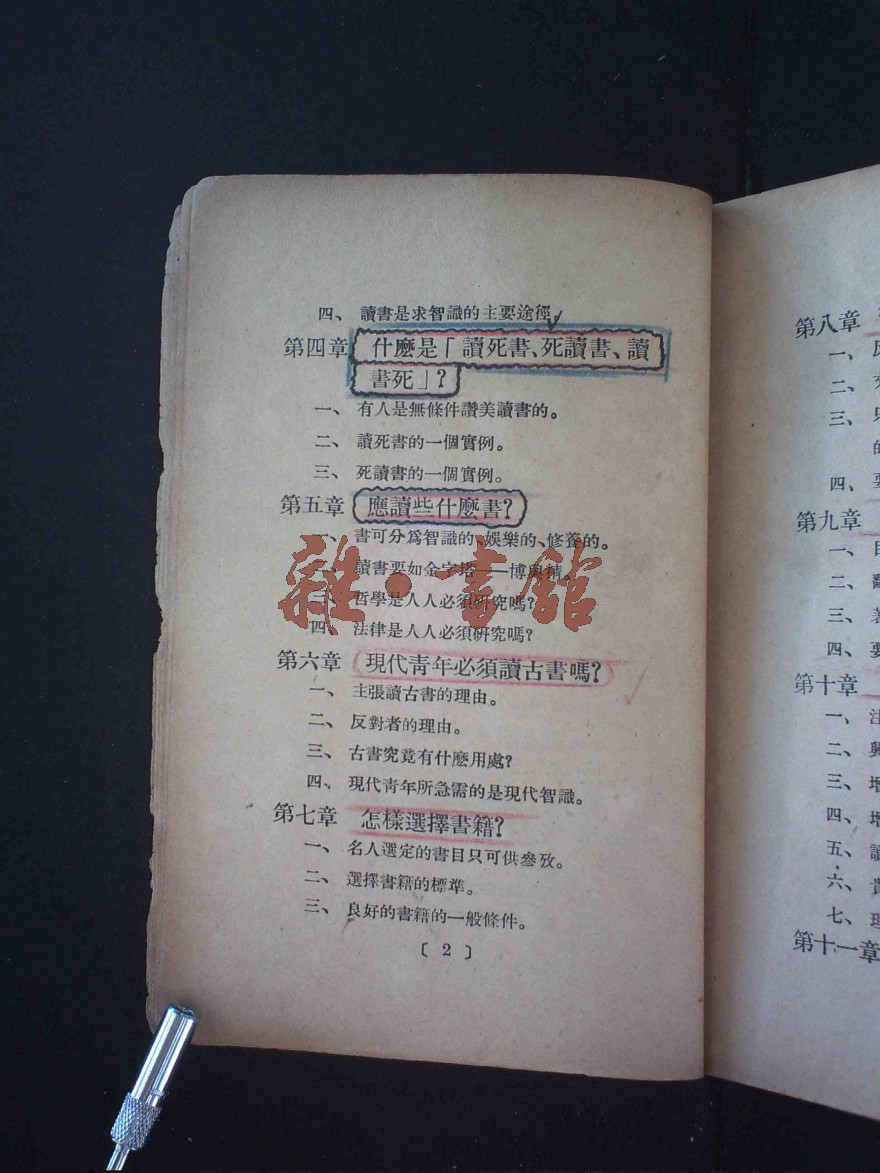 四、讀書是求智識的主要途徑。
第四章 什麽是「讀死書、死讀書、讀
書死」?
一、有人是無條件讚美讀書的。
二、讀死書的一個實例。
三、死讀書的一個實例。
第五章 應讀些什麽書?
一、書可分爲智識的、娛樂的、修養的。
二、讀書要如金字塔——博與精。
三、哲學是人人必須研究嗎?
四、法律是人人必須研究嗎?
雜·書舘
第六章 現代靑年必須讀古書嗎?
一、主張讀古書的理由。
二、反對者的理由。
三、古書究竟有什麽用處?
四、現代靑年所急需的是現代智識。
第七章 怎樣選擇書籍?
一、名人選定的書目只可供參攷。
二、選擇書籍的標準。
三、良好的書籍的一般條件。
〔2〕
第八章
一、
二、
三、
的
四、要
第九章
一、
二、
三、
四、要
第十章
一、注
二、興
三、增
四、增
五、讀
六、
七、理
第十一章